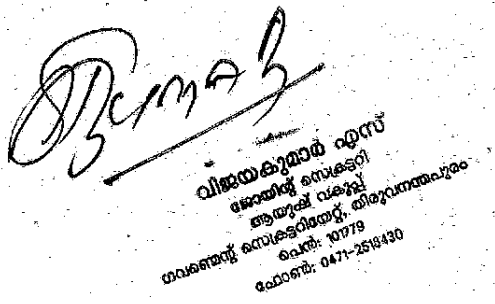 വിജയകുമാർ എസ്
ജോയിന്റ് സെക്രട്ടറി
ആയുഷ് വകുപ്പ്
ഗവണ്മെന്റ് സെക്രട്ടറിയേറ്റ്, തിരുവനന്തപുരം
പെൻ: 101779
ഫോൺ: 0471-2518430